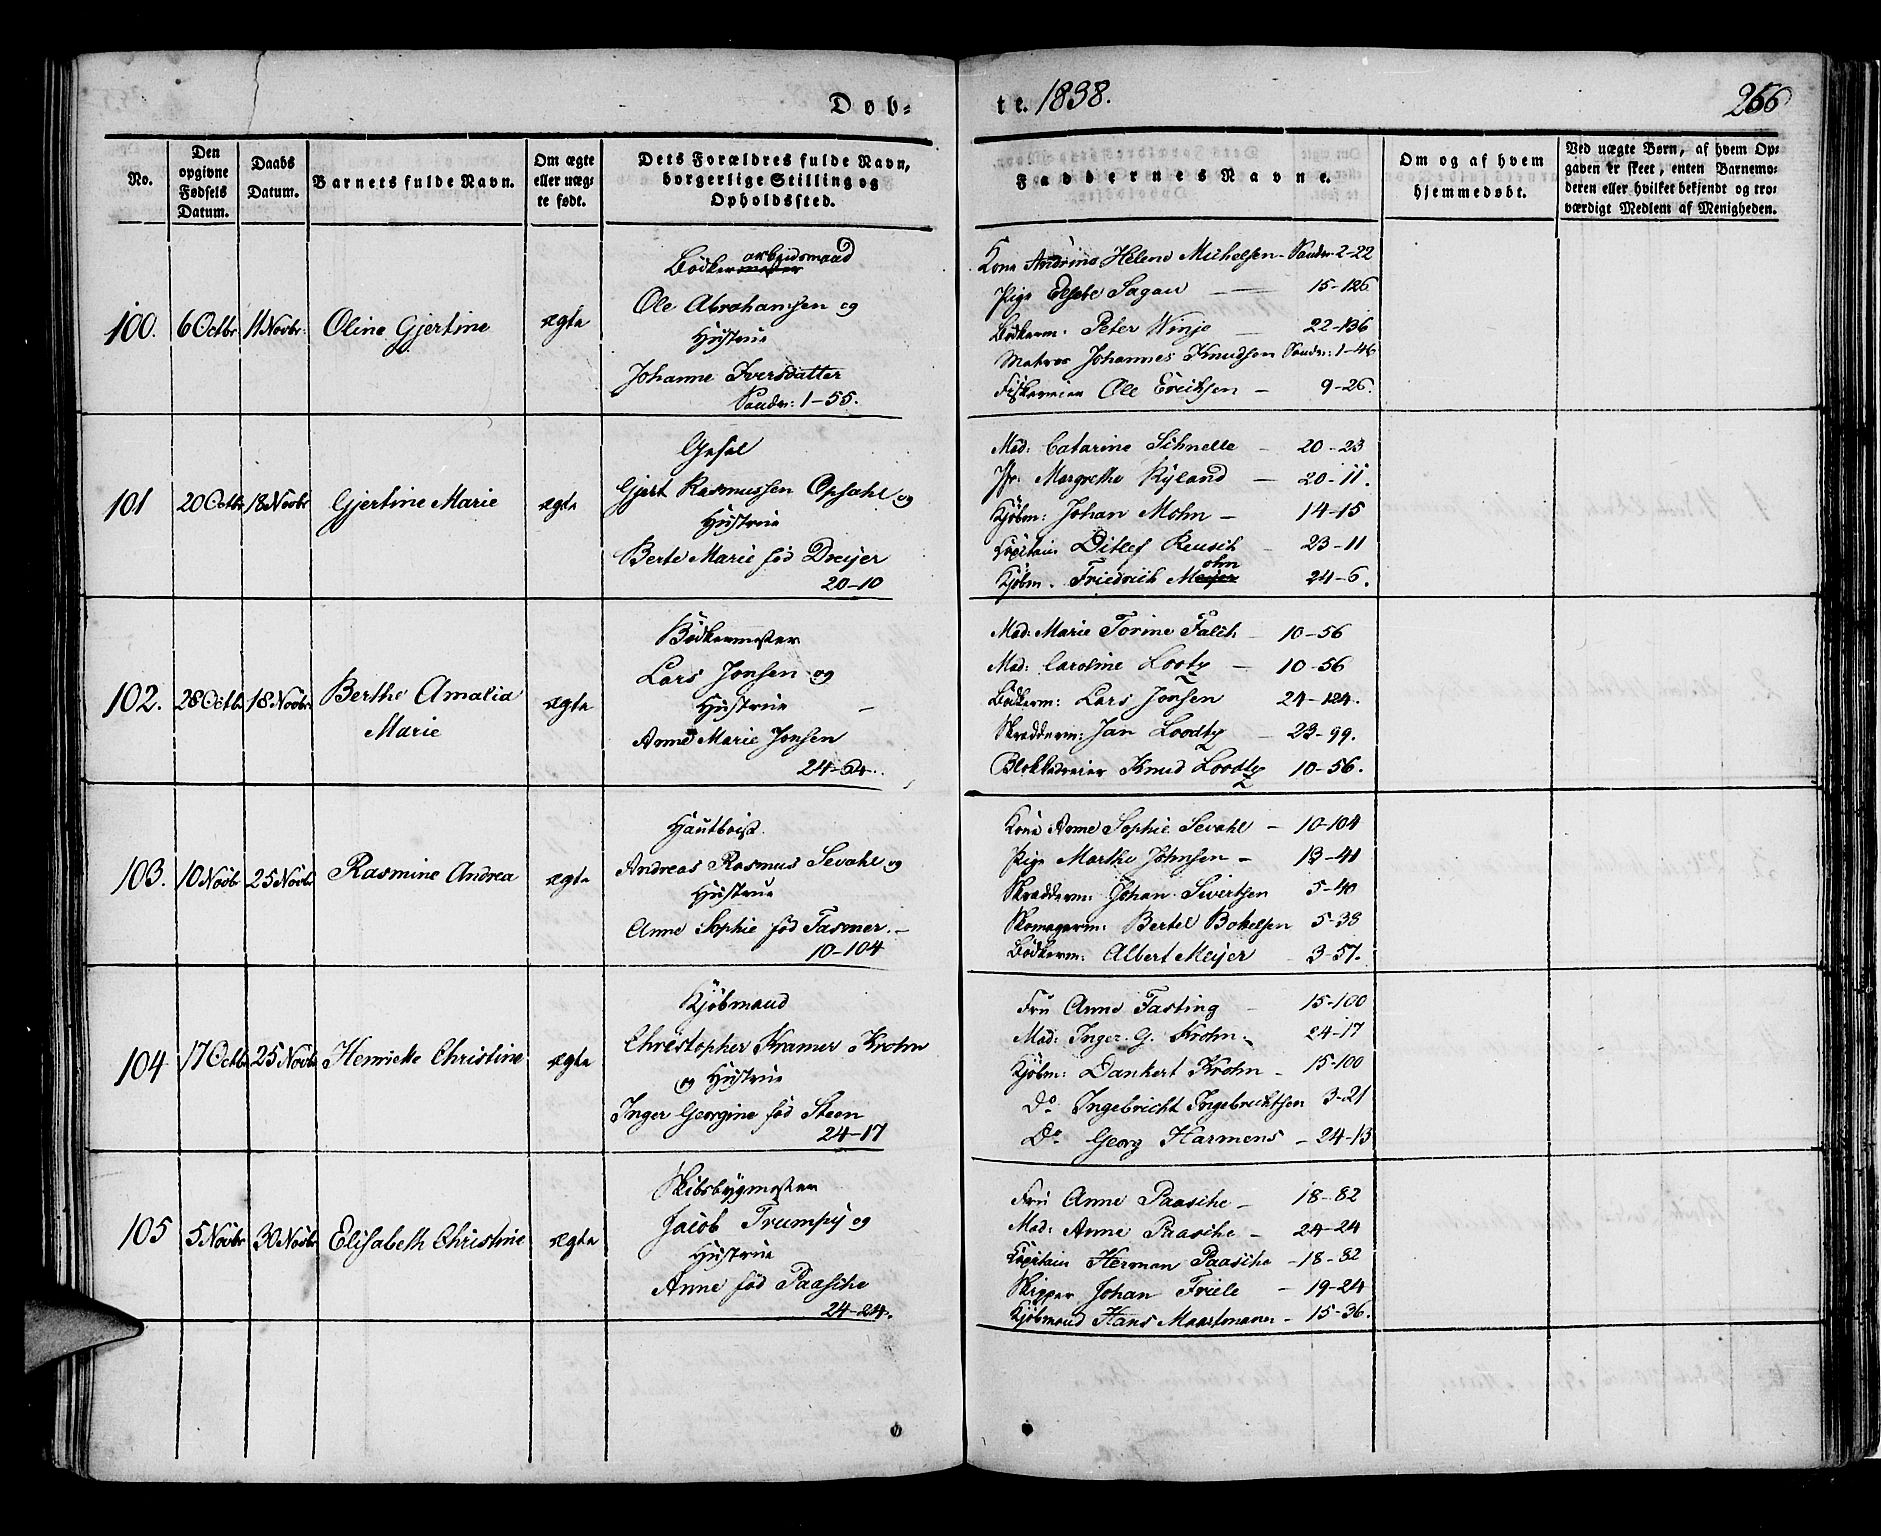 Døb-
te. 1838.
266
No.
Den opgivne Fødsels Datum.
Daabs Datum.
Barnets fulde Navn.
Om ægte eller uæg-te født.
Dets Forældres fulde Navn, borgerlige Stilling og Opholdssted.
Faddernes Navne.
Om og af hvem hjemmedøbt.
Ved uægte Børn, af hvem Op-gaven er skeet, enten Barnemo-deren eller hvilket bekjendt og tro-værdigt Medlem af Menigheden.
100. 6 Octbr 11 Novbr: Oline Gjertine ægte
arbeidsmand
Bödkermester
Ole Abrahamsen og
Hustrue
Johanne Iversdatter
Sandv: 1-55.
Kone Andrine Helene Michelsen - Sandv: 2-22
Pige Elsebe Sagau 15-126
Bödkerm: Peter Winje 22-136
Matros Johannes Knudsen Sandv: 1-46
Ole Ericksen - 9-26.
101 20 Octbr 18 Novbr Gjertine Marie ægte
Gesel
Gjert Rasmussen Opsahl og
Hustrue
Berte Marie föd Dreyer
20-10
Mad: Catarine Schnelle - 20-23
Jfr: Margrethe Ryland - 20-11.
Kjöbm: Johan Mohn - 14-15
Capitain Ditlef Reusch - 23-11
ohn
Kjöbm. Friedrich Meijer 24-6.
102. 28 Octbr 18 Novbr Berthe Amalia
Marie ægte
Bödkermester
Lars Jonsen og
Hustrue -
Anne Marie Jonsen
Mad: Marie Torine Falch 10-56
Mad: Caroline Lootz - 10-56
Bödkerm: Lars Jonsen 24-124.
Skrædderm: Jan Loodtz - 23-99.
Blokkedreier Knud Loodtz 10-56.
103. 10 Novbr 25 Novbr Rasmine Andrea ægte
Hautboist
Andreas Rasmus Sevahl og
Hustrue
Anne Sophie föd Fasmer. -
10-104
Kone Anne Sophie Sevahl - 10-104
Pige Marthe Johnsen - 13-41
Skrædderm: Johan Sivertsen 5-40
Skomagerm: Bertel Bottelsen 5-38
Bödkerm: Albert Meijer - 3-57.
104 17 Octbr 25 Novbr Henriette Christine ægte
Kjöbmand
Christopher Kramer Krohn
og Hustrue
Inger Georgine föd Steen
24-17
Fru Anne Fasting - 15-100
Mad: Inger G. Krohn - 24-17
Kjöbm: Dankert Krohn - 15-100
Do. Ingebricht Ingebrichtsen 3-21
Do. Georg Harmens - 24-13
105 5 Novbr 30 Novbr Elisabeth Christine ægte
Skibsbygmester
Jacob Trumpy og
Hustrue
Anne föd Paasche
24-24.
Fru Anne Paasche - 18-82
Mad: Anne Paasche - 24-24
Capitain Herman Paasche - 18-82
Skipper Johan Friele - 19-24
Kjöbmand Hans Maartmann - 15-36.